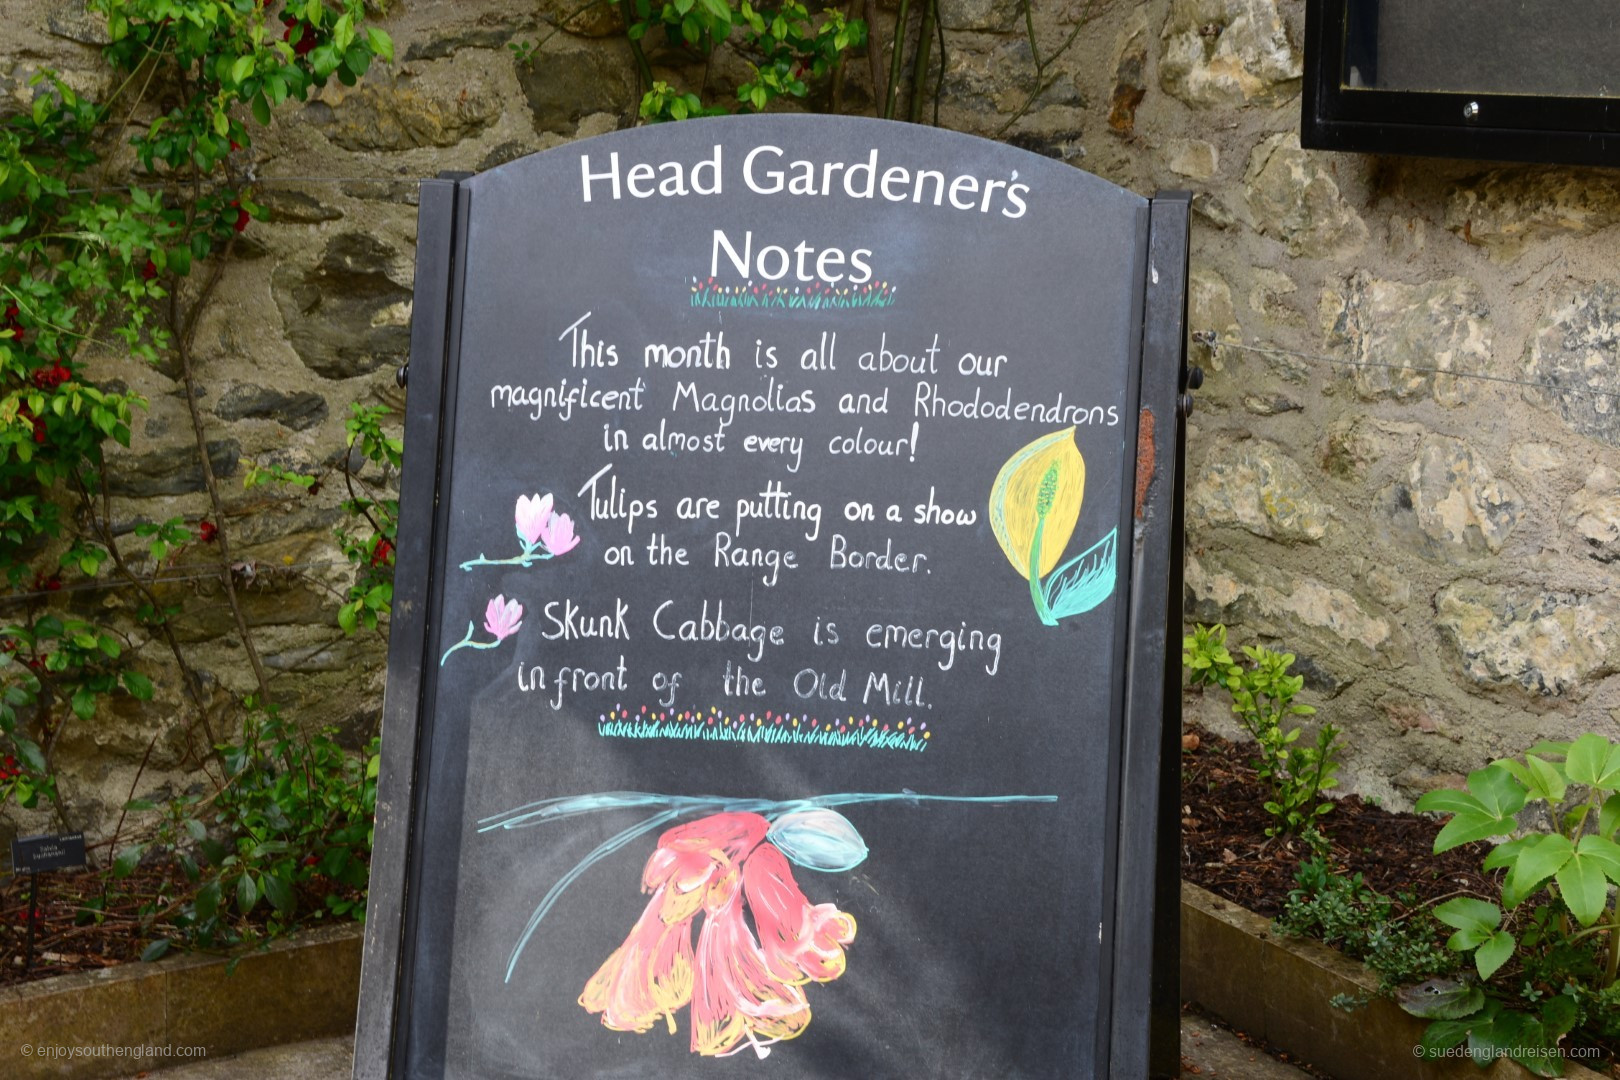 Head Gardener's
Notes
This month is all about our
magnificent Magnolias and Rhododendrons
in almost every colour!
Tulips are putting on a show
on the Range Border.
Skunk Cabbage is emerging
in front of the Old Mill.
© enjoysouthengland.com
© suedenglandreisen.com